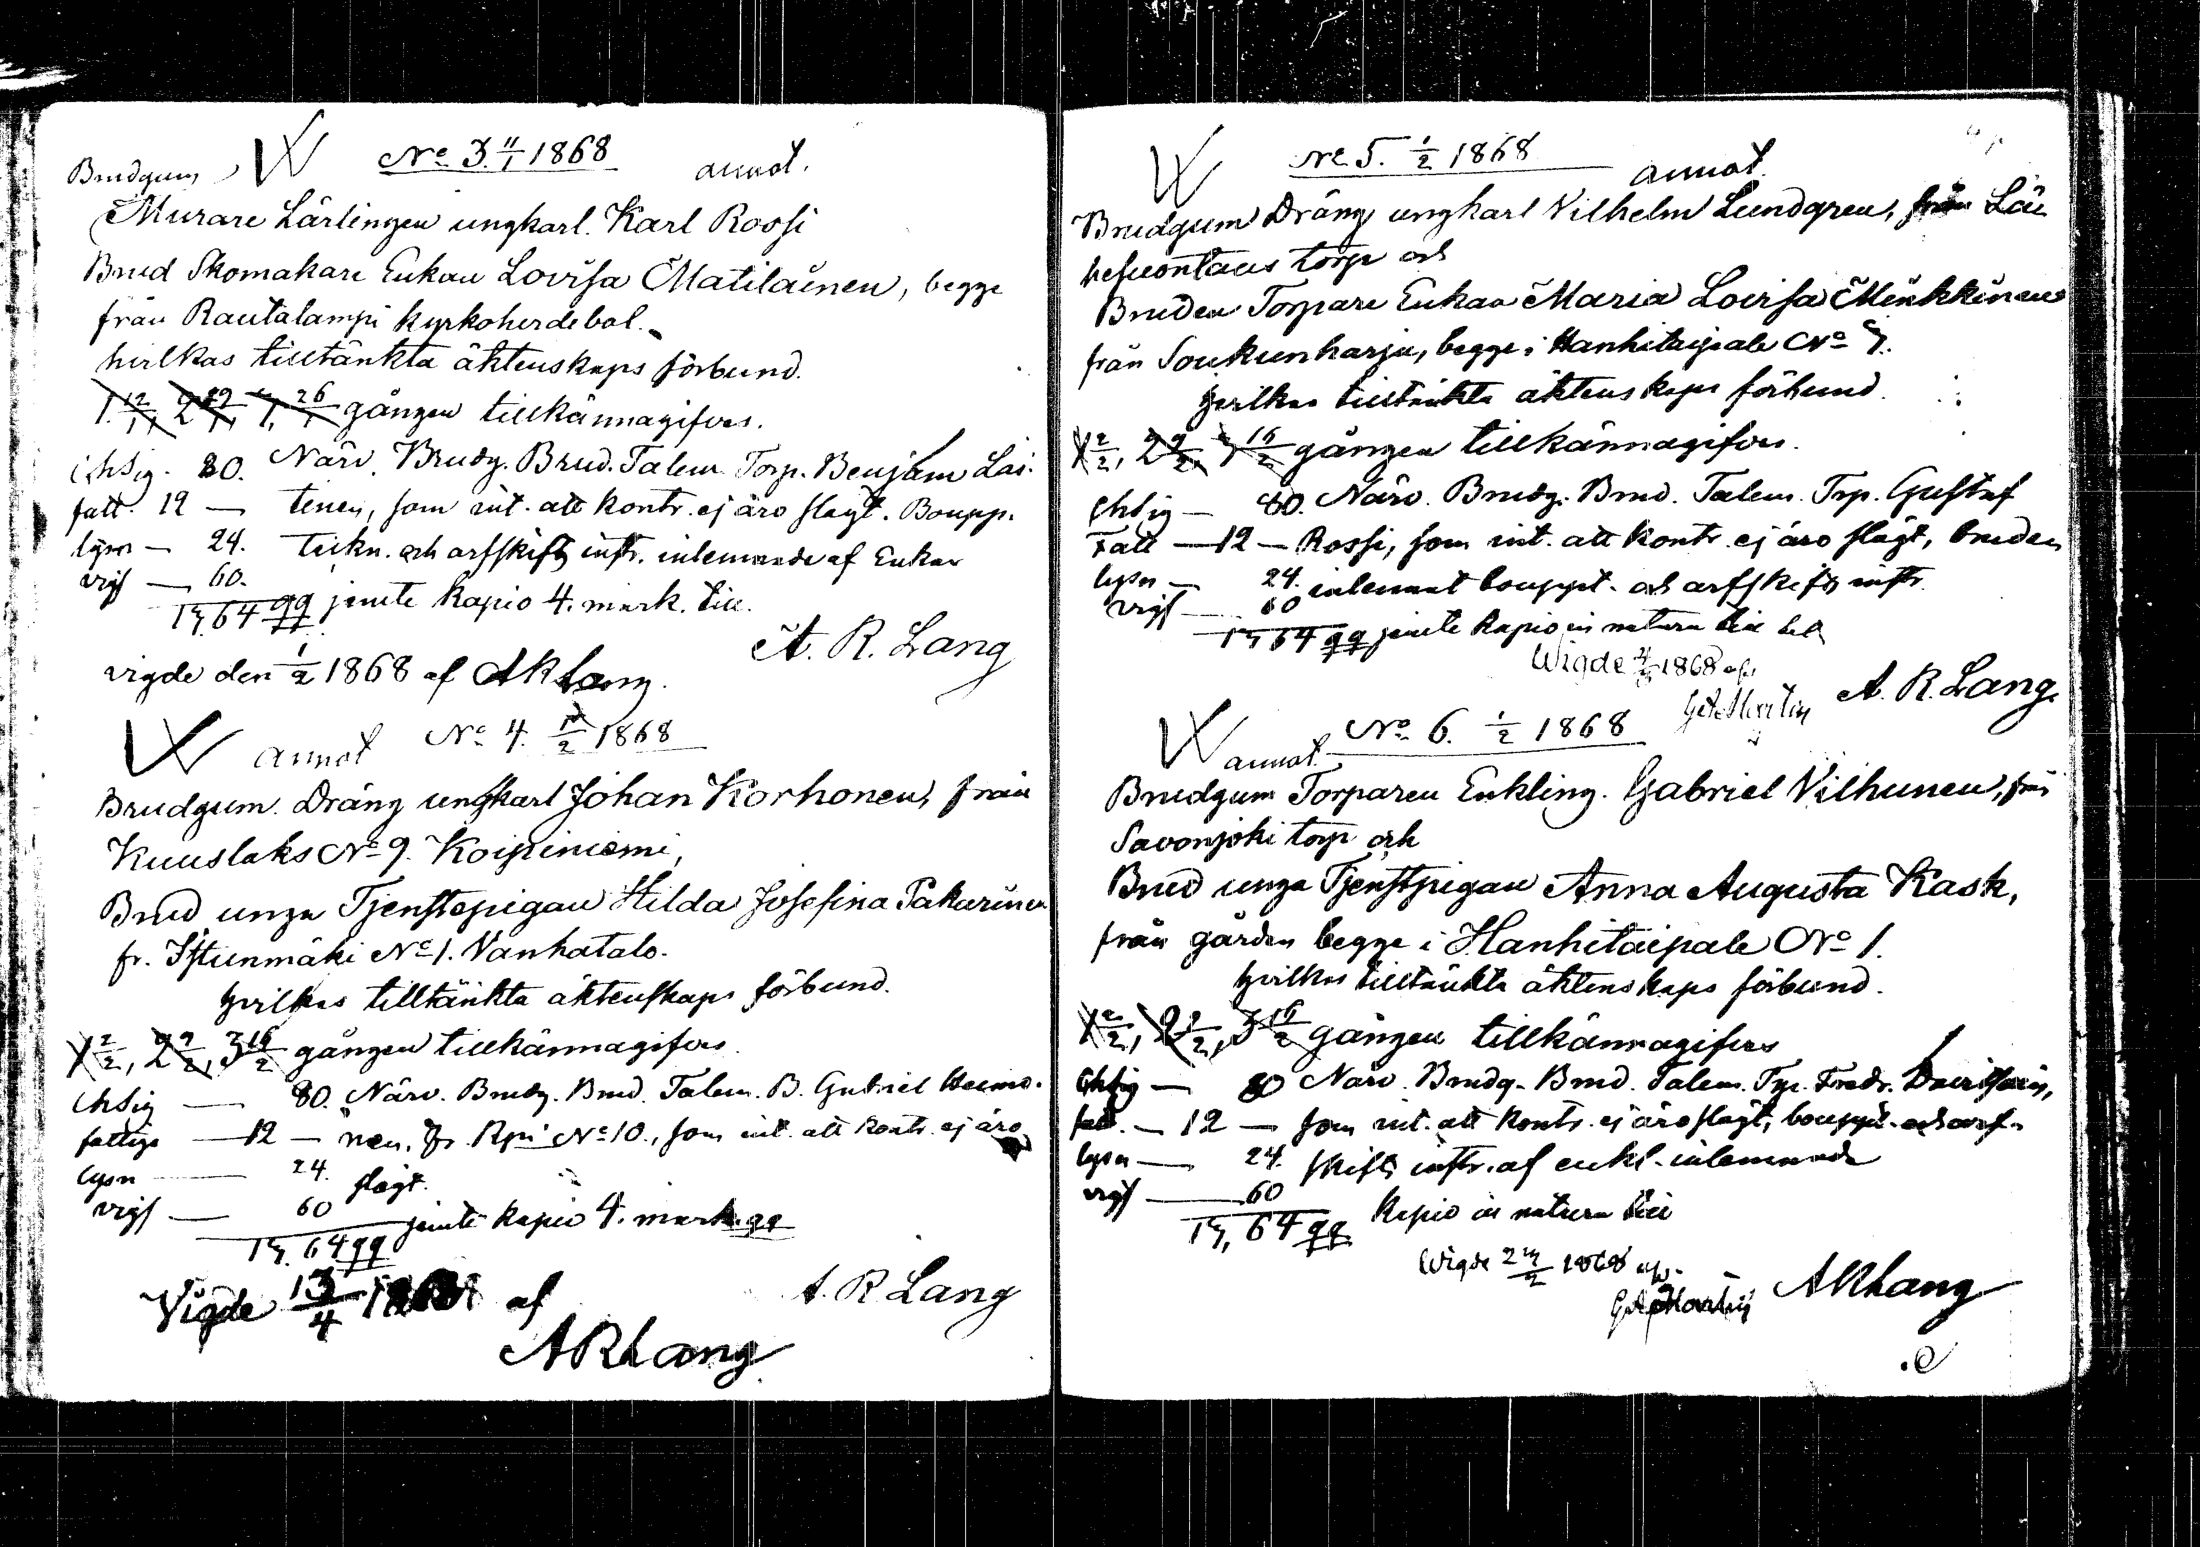 Nº 3. 11/1 1868 annot.
Brudgum
Murare Lärlingen ungkarl. Karl Rossi
Brud Skomakare Enkan Lovisa Matilainen, begge
från Rautalampi Kyrkoherdebol.
hvilkas tilltänkta äktenskaps förbund.
1. 12/1, 2 19/1, 3, 26/1 gången tillkännagifves.
80. Närv. Brudg. Brud. Talem. Torp. Benjam Lai-
fatt. 12 — tinen, som int. att kontr. ej äro slägt. Boupp.
lysn — 24. teckn. och arfskifts instr. inlemnade af Enkan
vigs — 60.
1 3, 64 qq jemte Kapio 4. mark. till.
A. R. Lang
vigde den 1/2 1868 af ARLang.
annot Nº 4. 1/2 1868
Brudgum. Dräng ungkarl Johan Korhonen, från
Kuuslaks Nº 9. Koipiniemi,
Brud unga Tjenstepigan Hilda Josefina Pakarinen
fr. Istunmäki Nº 1. Vanhatalo.
hvilkas tilltänkta äktenskaps förbund.
1 2/2, 2 9/2, 3 16/2 gången tillkännagifves.
80. Närv. Brudg. Brud. Talem. B. Gabriel
fattiga — 12 — nen, fr. Kpi Nº 10., som int. att kontr. ej äro
lysn — 24. slägt.
vigs — 60 jemte kapio 4. mark. qq
1 3, 64 qq
A. R Lang
Vigde 13/4 1868 af
ARLang
Nº 5. 1/2 1868 annot.
Brudgum Dräng ungkarl Vilhelm Lundgren, från
torp och
Bruden Torpare Enkan Maria Lovisa Minkkinen
från Soukunharju, begge i Hanhitaipale Nº 7.
hvilkas tilltänkta äktenskaps förbund.
1 2/2, 2 9/2, 3 16/2 gången tillkännagifves.
80. Närv. Brudg. Brud. Talem. Trp. Gustaf
Fatt — 12 — Rossi, som int. att kontr. ej äro slägt, bruden
lysn — 24. inlemnat bouppt. och arfskifts instr.
vigs — 60
1 3, 64 qq jemte Kapio in natura till
Wigde 1868 af
A. R. Lang.
annot. Nº 6. 1/2 1868
Brudgum Torparen Enkling. Gabriel Vilhunen, från
Savonjoki torp och
Brud unga Tjenstpigan Anna Augusta Kask,
från gården begge i Hanhitaipale Nº 1.
hvilkas tilltänkta äktenskaps förbund.
1 2/2, 2 9/2, 3 16/2 gången tillkännagifves
80 Närv. Brudg. Brud. Talem. Trp. Fredr.
fatt. — 12 — som int. att kontr. ej äro slägt, bouppt. och arf-
lysn — 24. skifts instr. af enkl. inlemnade
vigs — 60
1 3, 64 qq Kapio in natura till
Wigde 1868 af
ARLang